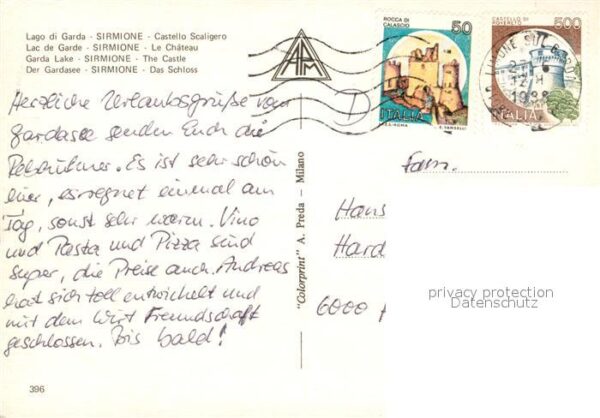 Lago di Garda - SIRMIONE - Castello Scaligero
Lac de Garde - SIRMIONE - Le Château
Garda Lake - SIRMIONE - The Castle
Der Gardasee - SIRMIONE - Das Schloss
APM
ROCCA DI CALASCIO
50
ITALIA
CASTELLO DI ROVERETO
500
ITALIA
1988
Herzliche Urlaubsgrüße vom
Gardasee senden Euch die
Es ist sehr schön
hier, es regnet einmal am
Tag, sonst sehr warm. Vino
und Pasta und Pizza sind
super, die Preise auch. Andreas
hat sich toll entwickelt und
mit dem Wirt Freundschaft
geschlossen. Bis bald!
D
Fam.
Hans
Hard
6000
"Colorprint" A. Preda - Milano
privacy protection
Datenschutz
396